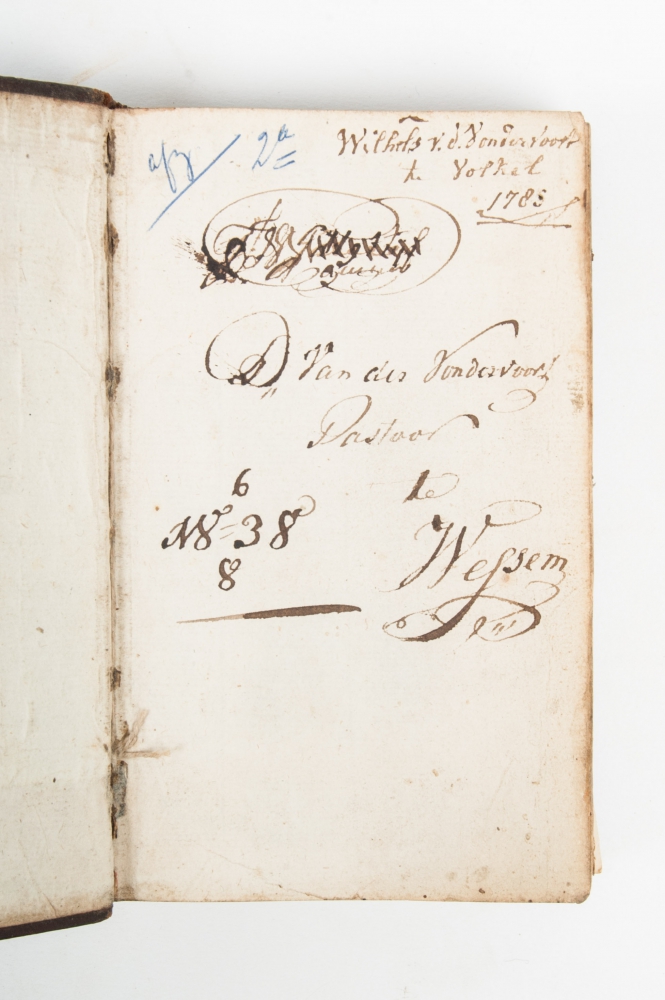 2a
Wilhels v. d. Vondervoort
te Volkel
1785
D Van der Vondervoort
Pastoor
6
N8=38
te
8
Wessem